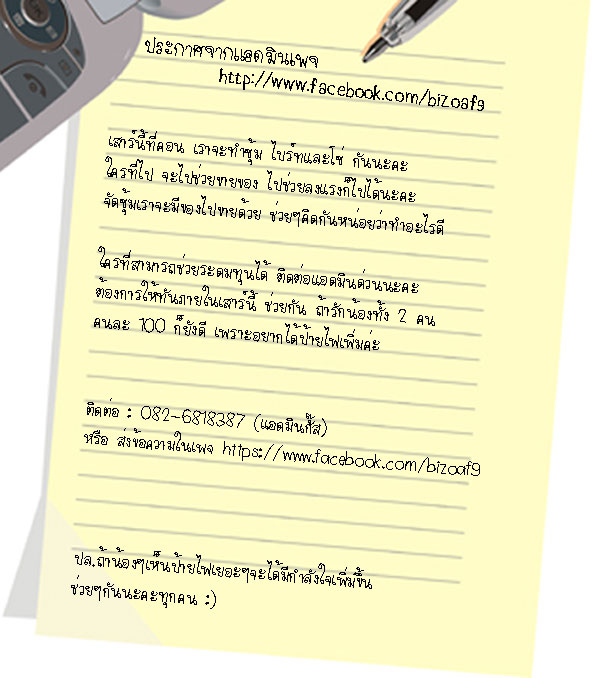 ประกาศจากแอดมินเพจ
http://www.facebook.com/bizoaf9
เสาร์นี้ที่คอน เราจะทำซุ้ม ไบร์ทและโซ่ กันนะคะ
ใครที่ไป จะไปช่วยขายของ ไปช่วยลงแรงก็ไปได้นะคะ
จัดซุ้มเราจะมีของไปขายด้วย ช่วยๆคิดกันหน่อยว่าทำอะไรดี
ใครที่สามารถช่วยระดมทุนได้ ติดต่อแอดมินด่วนนะคะ
ต้องการให้ทันภายในเสาร์นี้ ช่วยกัน ถ้ารักน้องทั้ง 2 คน
คนละ 100 ก็ยังดี เพราะอยากได้ป้ายไฟเพิ่มค่ะ
ติดต่อ : 082-6818387 (แอดมินกี้ส)
หรือ ส่งข้อความในเพจ https://www.facebook.com/bizoaf9
ปล.ถ้าน้องๆเห็นป้ายไฟเยอะๆจะได้มีกำลังใจเพิ่มขึ้น
ช่วยๆกันนะคะทุกคน :)